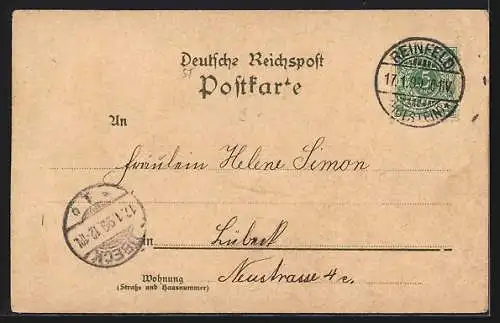 Deutsche Reichspost
Postkarte
REINFELD
17.1.
(HOLSTEIN)
5
An
Fräulein Helene Simon
LÜBECK
17.1.99.12-1N.
in Lübeck
Wohnung
(Straße und Hausnummer)
Neustrasse 4 c.